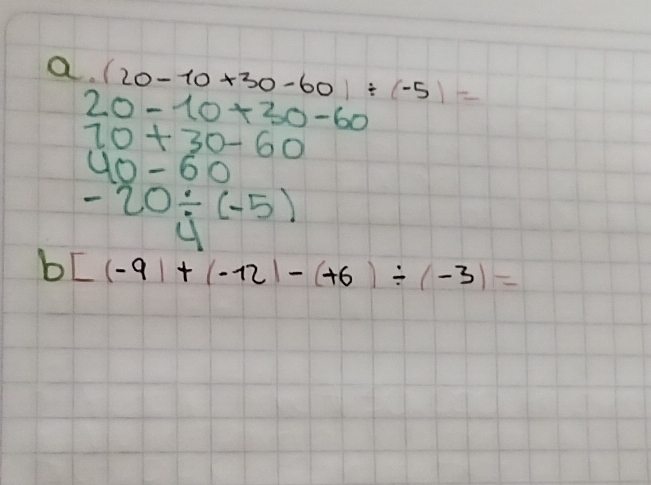 a. (20-10+30-60) ÷ (-5) =
20-10+30-60
10+30-60
40-60
-20 ÷ (-5)
4
b [(-9)+(-12)-(+6) ÷ (-3) =